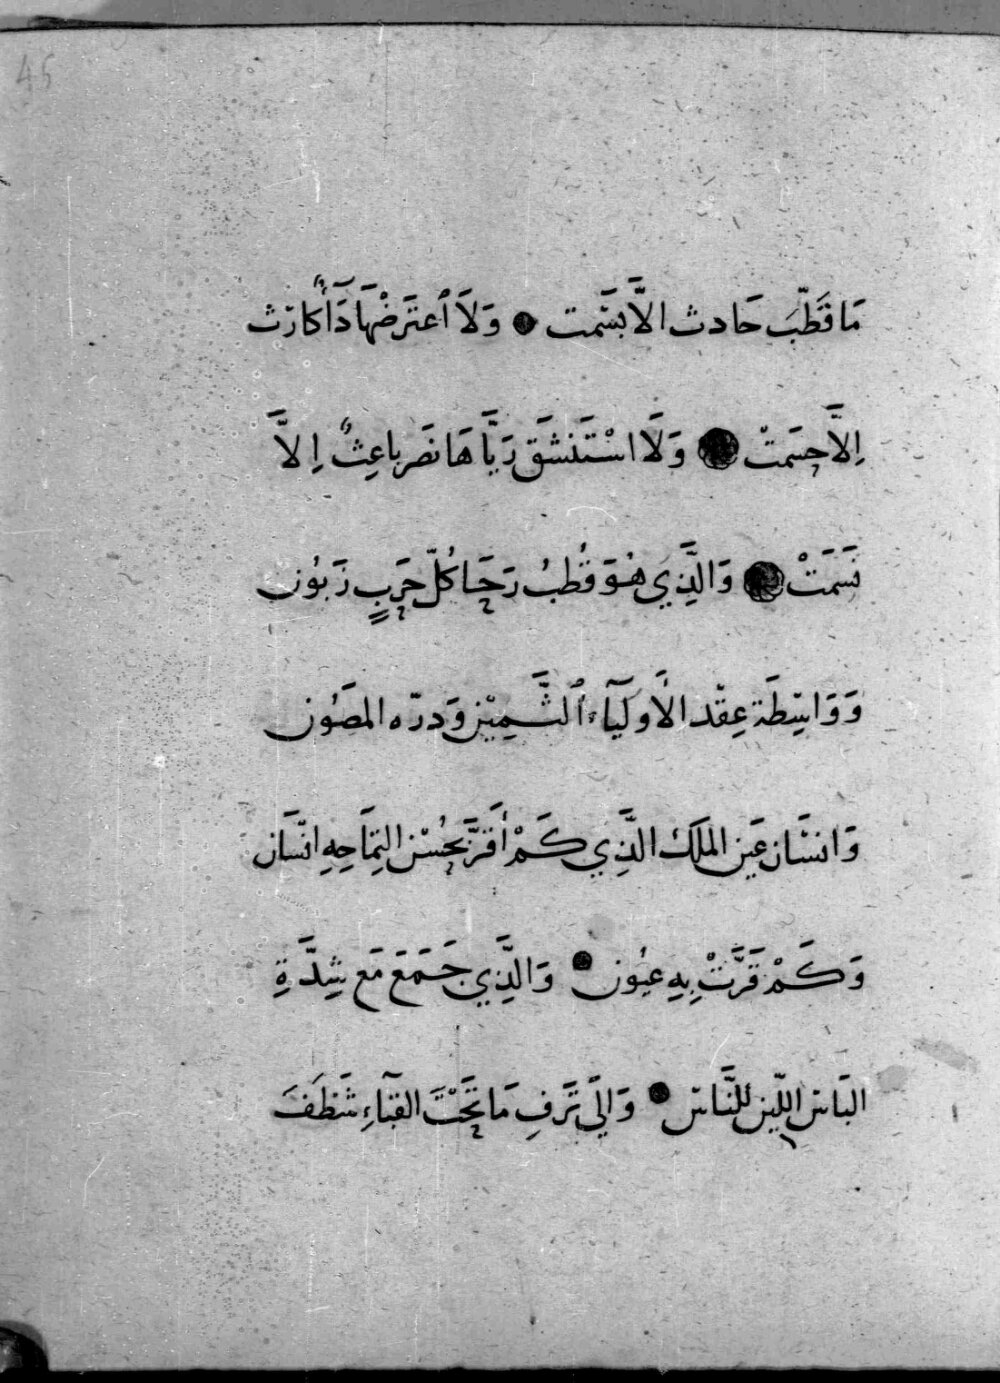 45
مَا قَطَّبَ حَادث الاَّ بسَّمت وَلاَ اعتَرضْهَا دَآءٌ كارث
اِلاَّ حسَمتْ وَلَا اسْتَنشَق رَيَّاهَا نضَر باعِثٌ اِلاَّ
نَسَمَتْ وَالَّذِي هُوَ قُطبُ رَحَا كُلّ حَربٍ زَبُون
وَوَاسِطَة عِقْد الأَوليَآء الثَّمِيْن وَدرّه المصَون
وَانسَان عَين الملَك الَّذِي كَمْ أقَرَّ بحُسْن التِمَاحِهِ انسَان
وَكَمْ قَرَّتْ بِهِ عيُون وَالَّذِي جَمَعَ مَع شِدَّةِ
البَاس اللّين للنَّاس وَالَى تَرَفِ مَا تَحْتَ القبَآءِ شَظَفَ